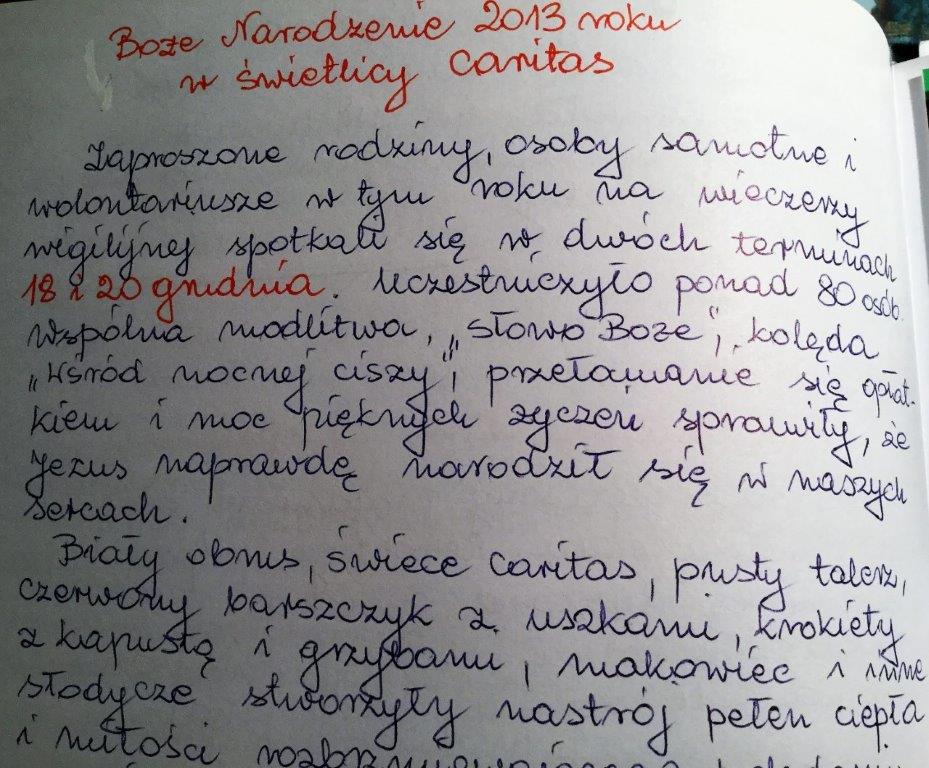 Boże Narodzenie 2013 roku
w świetlicy Caritas
Zaproszone rodziny, osoby samotne i
wolontariusze w tym roku na wieczerzy
wigilijnej spotkali się w dwóch terminach
18 i 20 grudnia. Uczestniczyło ponad 80 osób.
Wspólna modlitwa, „Słowo Boże", kolęda
„Wśród nocnej ciszy", przełamanie się opłat-
kiem i moc pięknych życzeń sprawiły, że
Jezus naprawdę narodził się w naszych
sercach.
Biały obrus, świece Caritas, pusty talerz,
czerwony barszczyk z uszkami, krokiety
z kapustą i grzybami, makowiec i inne
słodycze stworzyły nastrój pełen ciepła
i miłości